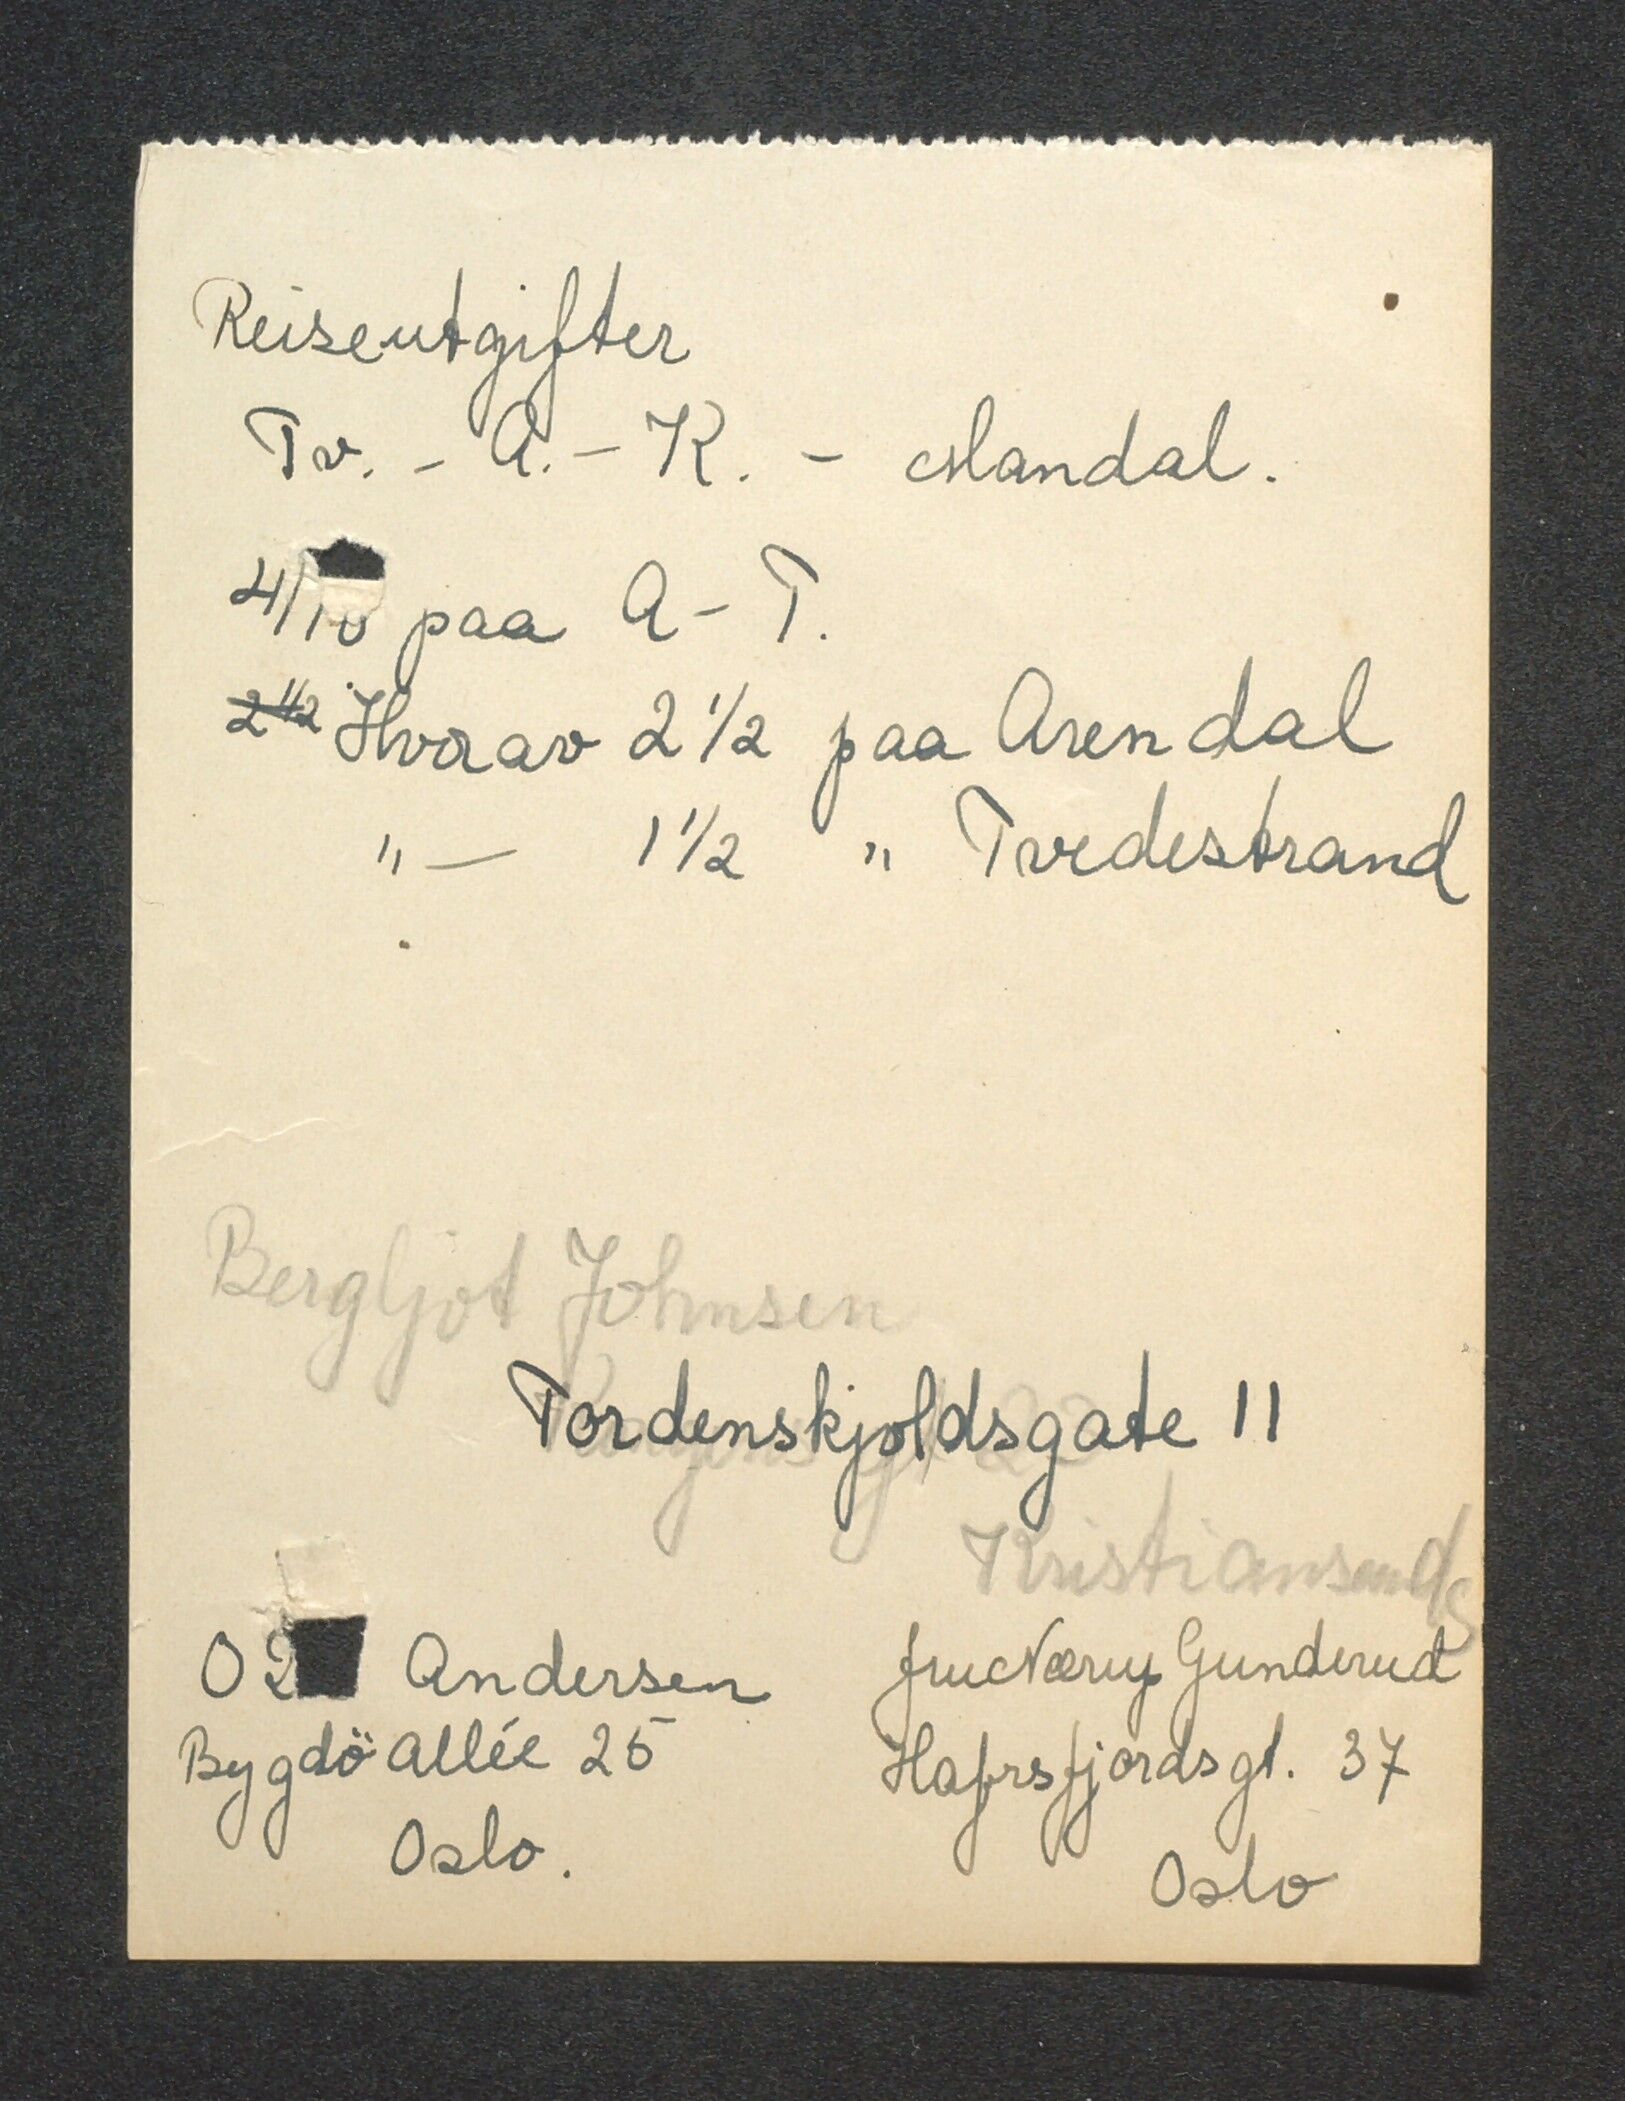 Reiseutgifter
Tv. - A. - K. - Mandal.
4/10 paa A - T.
2 1/2 Hvorav 2 1/2 paa Arendal
" — 1 1/2 " Tvedestrand
Bergljot Johnsen
Tordenskjoldsgate 11
Kristiansand S
Andersen
Bygdö Allée 25
Oslo.
fru Nærup Gunderud
Hafrsfjordsgt. 37
Oslo